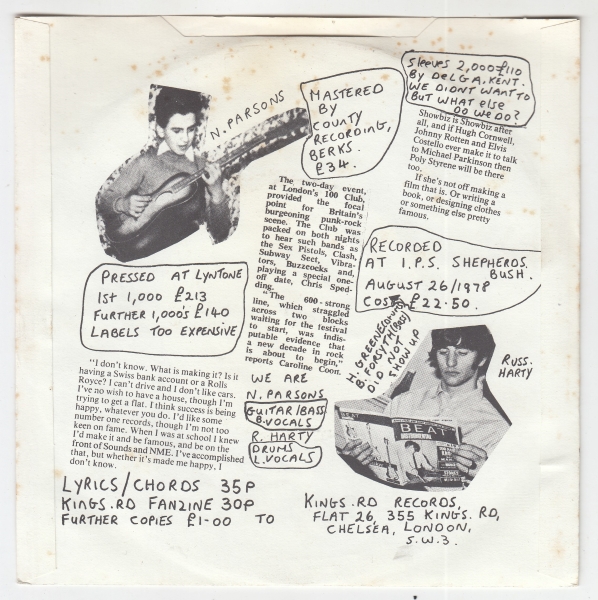 N. PARSONS
MASTERED
BY
COUNTY
RECORDING,
BERKS.
£34.
SLEEVES 2,000=£110
BY DELGA, KENT.
WE DIDNT WANT TO
BUT WHAT ELSE
DO WE DO?
Showbiz is Showbiz after
all, and if Hugh Cornwell,
Johnny Rotten and Elvis
Costello ever make it to talk
to Michael Parkinson then
Poly Styrene will be there
too.
If she's not off making a
film that is. Or writing a
book, or designing clothes
or something else pretty
famous.
The two-day event,
at London's 100 Club,
provided the focal
point for Britain's
burgeoning punk-rock
scene. The Club was
packed on both nights
to hear such bands as
the Sex Pistols, Clash,
Subway Sect, Vibra-
tors, Buzzcocks and,
playing a special one-
off date, Chris Sped-
ding.
"The 600-strong
line, which straggled
across two blocks
waiting for the festival
to start, was indis-
putable evidence that
a new decade in rock
is about to begin,"
reports Caroline Coon.
RECORDED
AT I.P.S. SHEPHERDS
BUSH.
AUGUST 26/1978
COST £22.50.
PRESSED AT LYNTONE
1ST 1,000 £213
FURTHER 1,000'S £140
LABELS TOO EXPENSIVE
"I don't know. What is making it? Is it
having a Swiss bank account or a Rolls
Royce? I can't drive and I don't like cars.
I've no wish to have a house, though I'm
trying to get a flat. I think success is being
happy, whatever you do. I'd like some
number one records, though I'm not too
keen on fame. When I was at school I knew
I'd make it and be famous, and be on the
front of Sounds and NME. I've accomplished
that, but whether it's made me happy, I
don't know.
WE ARE
N. PARSONS
GUITAR/BASS
B.VOCALS
R. HARTY
DRUMS
L.VOCALS
H. GREENE
B. FORSYTH
DID NOT
SHOW UP
RUSS.
HARTY
BEAT
INSTRUMENTAL
LYRICS/CHORDS 35P
KINGS.RD FANZINE 30P
FURTHER COPIES £1-00 TO
KINGS.RD RECORDS,
FLAT 26, 355 KINGS.RD,
CHELSEA, LONDON,
S.W.3.